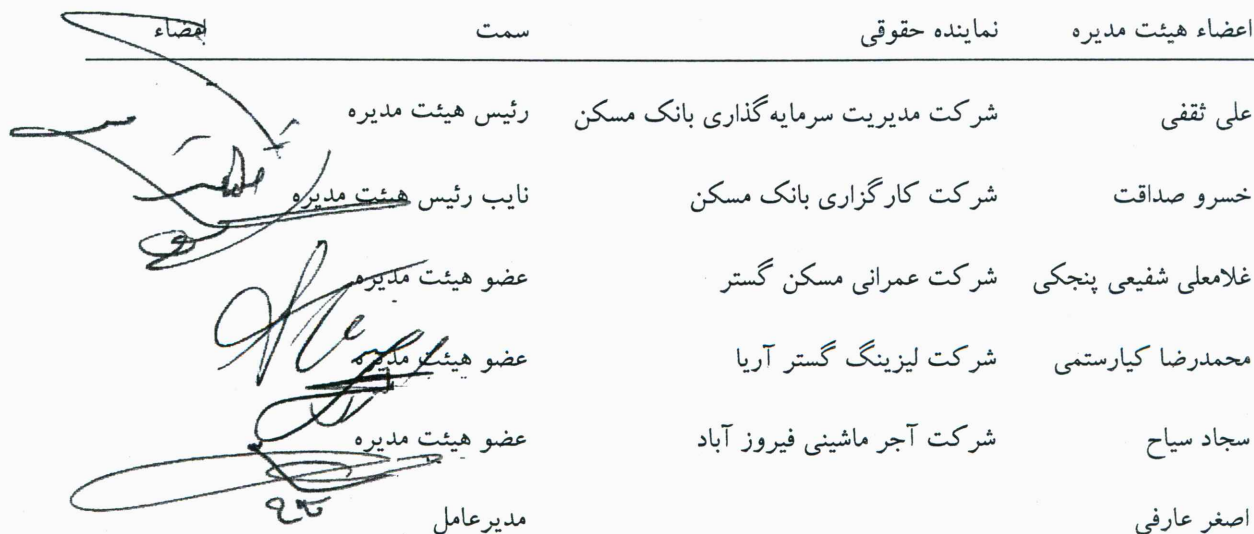 اعضاء هیئت مدیره نماینده حقوقی سمت امضاء
علی ثقفی شرکت مدیریت سرمایه گذاری بانک مسکن رئیس هیئت مدیره
خسرو صداقت شرکت کارگزاری بانک مسکن نایب رئیس هیئت مدیره
غلامعلی شفیعی پنجکی شرکت عمرانی مسکن گستر عضو هیئت مدیره
محمدرضا کیارستمی شرکت لیزینگ گستر آریا عضو هیئت مدیره
سجاد سیاح شرکت آجر ماشینی فیروز آباد عضو هیئت مدیره
اصغر عارفی مدیرعامل